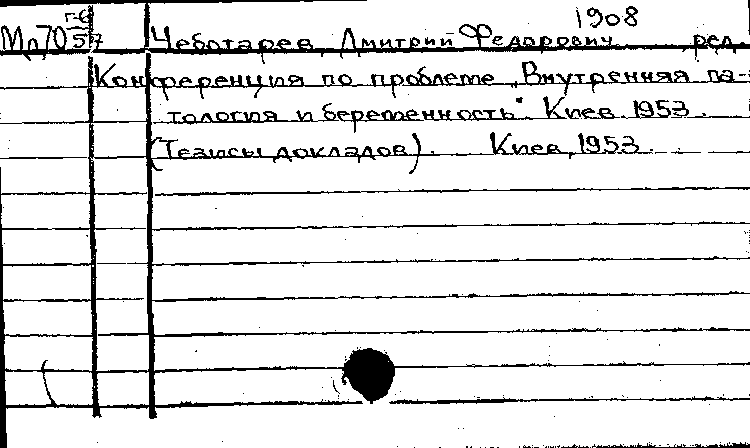 1908
Чеботарев, Дмитрий Федорович, ред.
Конференция по проблеме „Внутренняя па-
тология и беременность". Киев. 1953.
(Тезисы докладов). Киев, 1953.